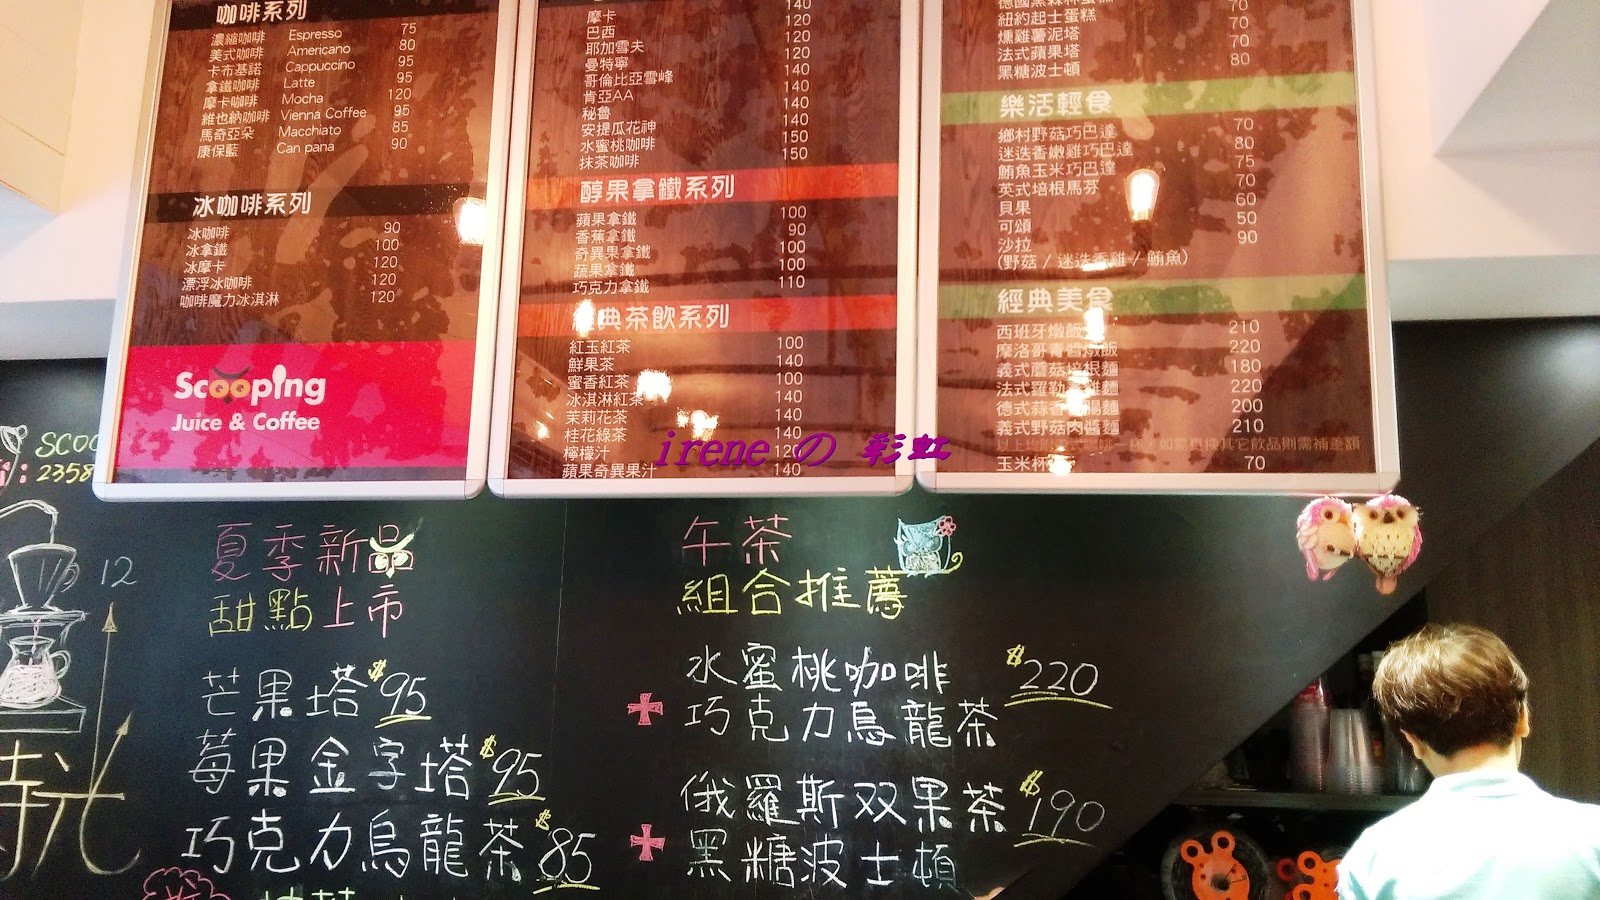 咖啡系列
濃縮咖啡 Espresso 75
美式咖啡 Americano 80
卡布基諾 Cappuccino 95
拿鐵咖啡 Latte 95
摩卡咖啡 Mocha 120
維也納咖啡 Vienna Coffee 95
馬奇亞朵 Macchiato 85
康保藍 Can pana 90
冰咖啡系列
冰咖啡 90
冰拿鐵 100
冰摩卡 120
漂浮冰咖啡 120
咖啡魔力冰淇淋 120
Scooping
Juice & Coffee
140
摩卡 140
巴西 120
耶加雪夫 120
曼特寧 140
哥倫比亞雪峰 140
肯亞AA 140
秘魯 140
安提瓜花神 150
水蜜桃咖啡 150
抹茶咖啡
醇果拿鐵系列
蘋果拿鐵 100
香蕉拿鐵 90
奇異果拿鐵 100
蔬果拿鐵 100
巧克力拿鐵 110
典茶飲系列
紅玉紅茶 100
鮮果茶 140
蜜香紅茶 100
冰淇淋紅茶 140
茉莉花茶 140
桂花綠茶 140
檸檬汁 120
蘋果奇異果汁 140
70
紐約起士蛋糕 70
燻雞薯泥塔 70
法式蘋果塔 80
黑糖波士頓
樂活輕食
鄉村野菇巧巴達 70
迷迭香嫩雞巧巴達 80
鮪魚玉米巧巴達 75
英式培根馬芬 70
貝果 60
可頌 50
沙拉 90
(野菇 / 迷迭香雞 / 鮪魚)
經典美食
西班牙燉飯 210
摩洛哥青醬燉飯 220
義式蘑菇培根麵 180
法式羅勒 雞麵 220
德式蒜香 腸麵 200
義式野菇肉醬麵 210
如需更換其它飲品則需補差額
玉米杯 70
irene の 彩虹
SCOO
2358
12
時光
夏季新品
甜點上市
芒果塔 $95
莓果金字塔 $95
巧克力烏龍茶 $85
午茶
組合推薦
水蜜桃咖啡 $220
+ 巧克力烏龍茶
俄羅斯双果茶 $190
+ 黑糖波士頓